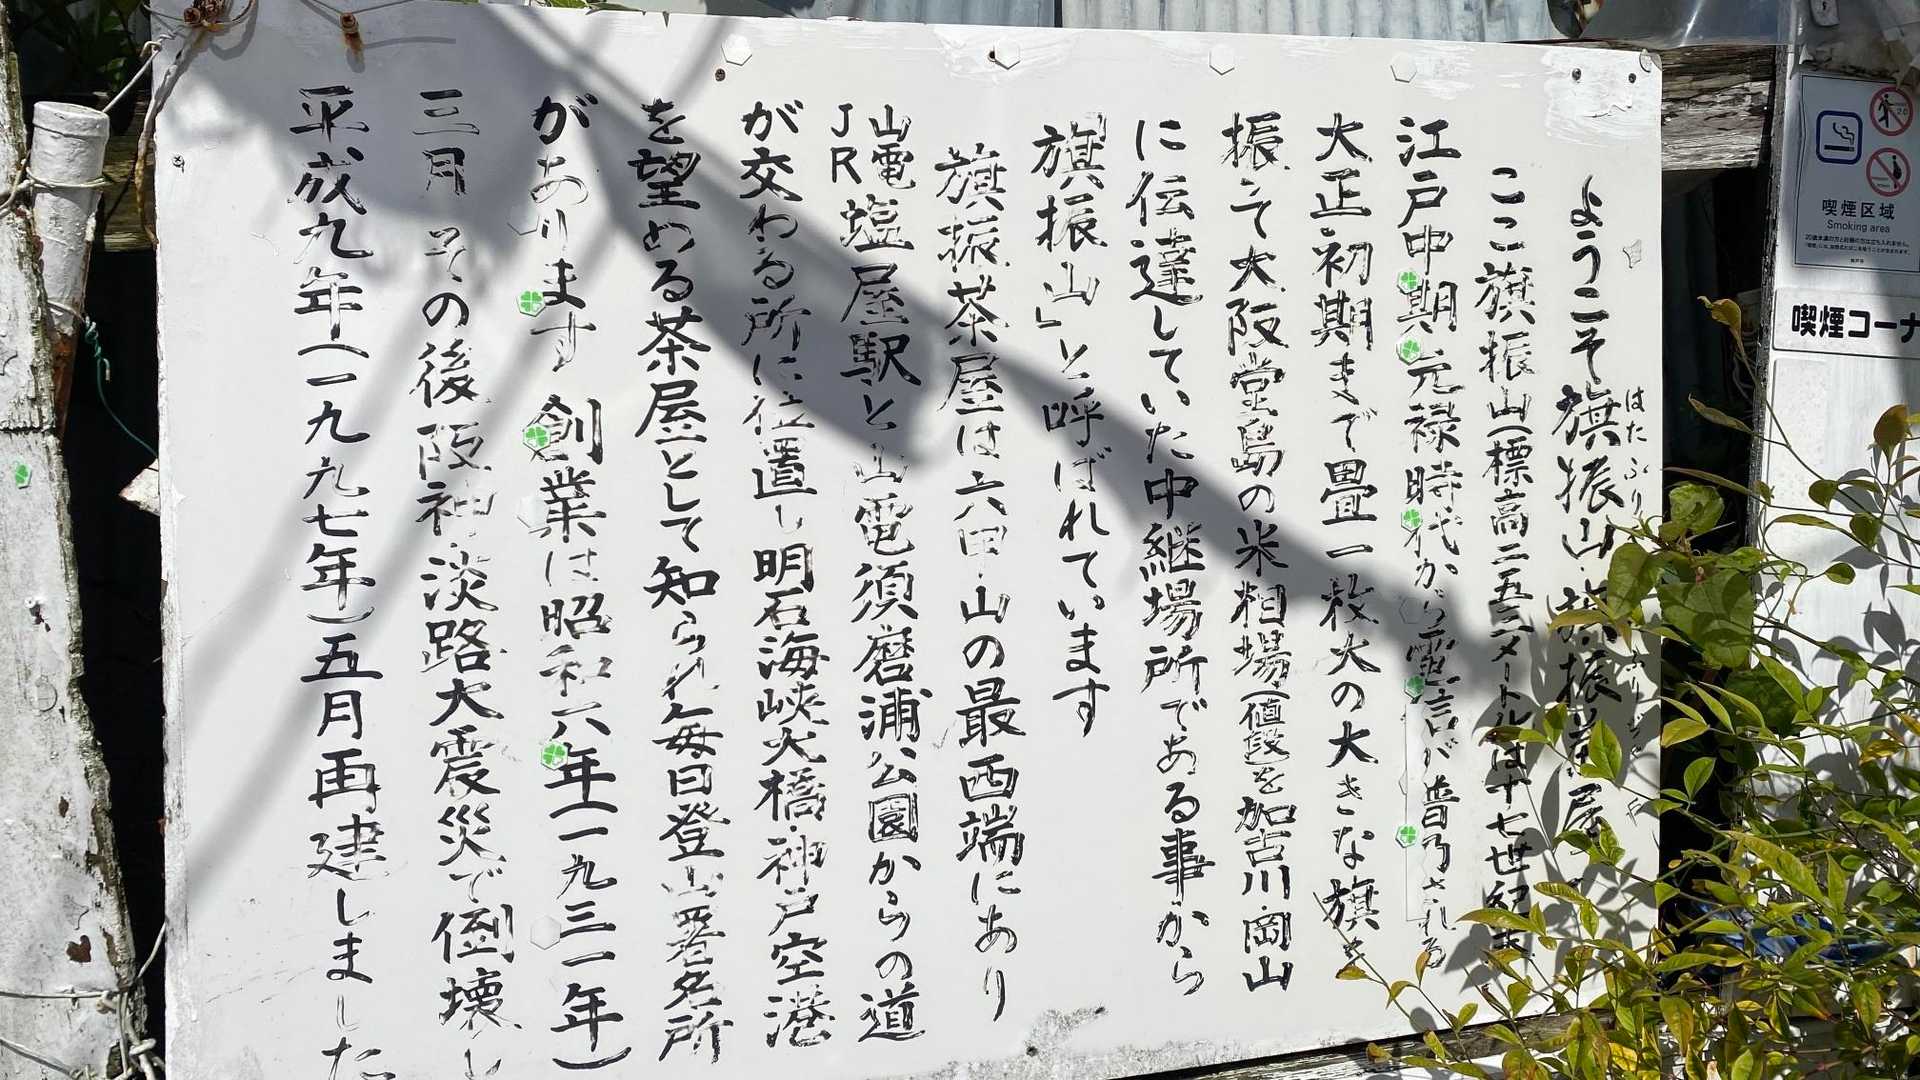 ようこそ旗振山・旗振茶屋
はたふり
ここ旗振山(標高二五三メートル)は十七世紀
江戸中期元禄時代から電信が普及される
大正初期まで畳一枚大の大きな旗を
振って大阪堂島の米相場(値段)を加古川・岡山
に伝達していた中継場所である事から
旗振山」と呼ばれています
旗振茶屋は六甲山の最西端にあり
山電
JR
塩屋駅と山電須磨浦公園からの道
が交わる所に位置し明石海峡大橋・神戸空港
を望める茶屋として知られ毎日登山署名所
があります 創業は昭和六年(一九三一年)
三月 その後 阪神・淡路大震災で倒壊し
平成九年(一九九七年)五月再建しました
喫煙区域
Smoking area
喫煙コーナ